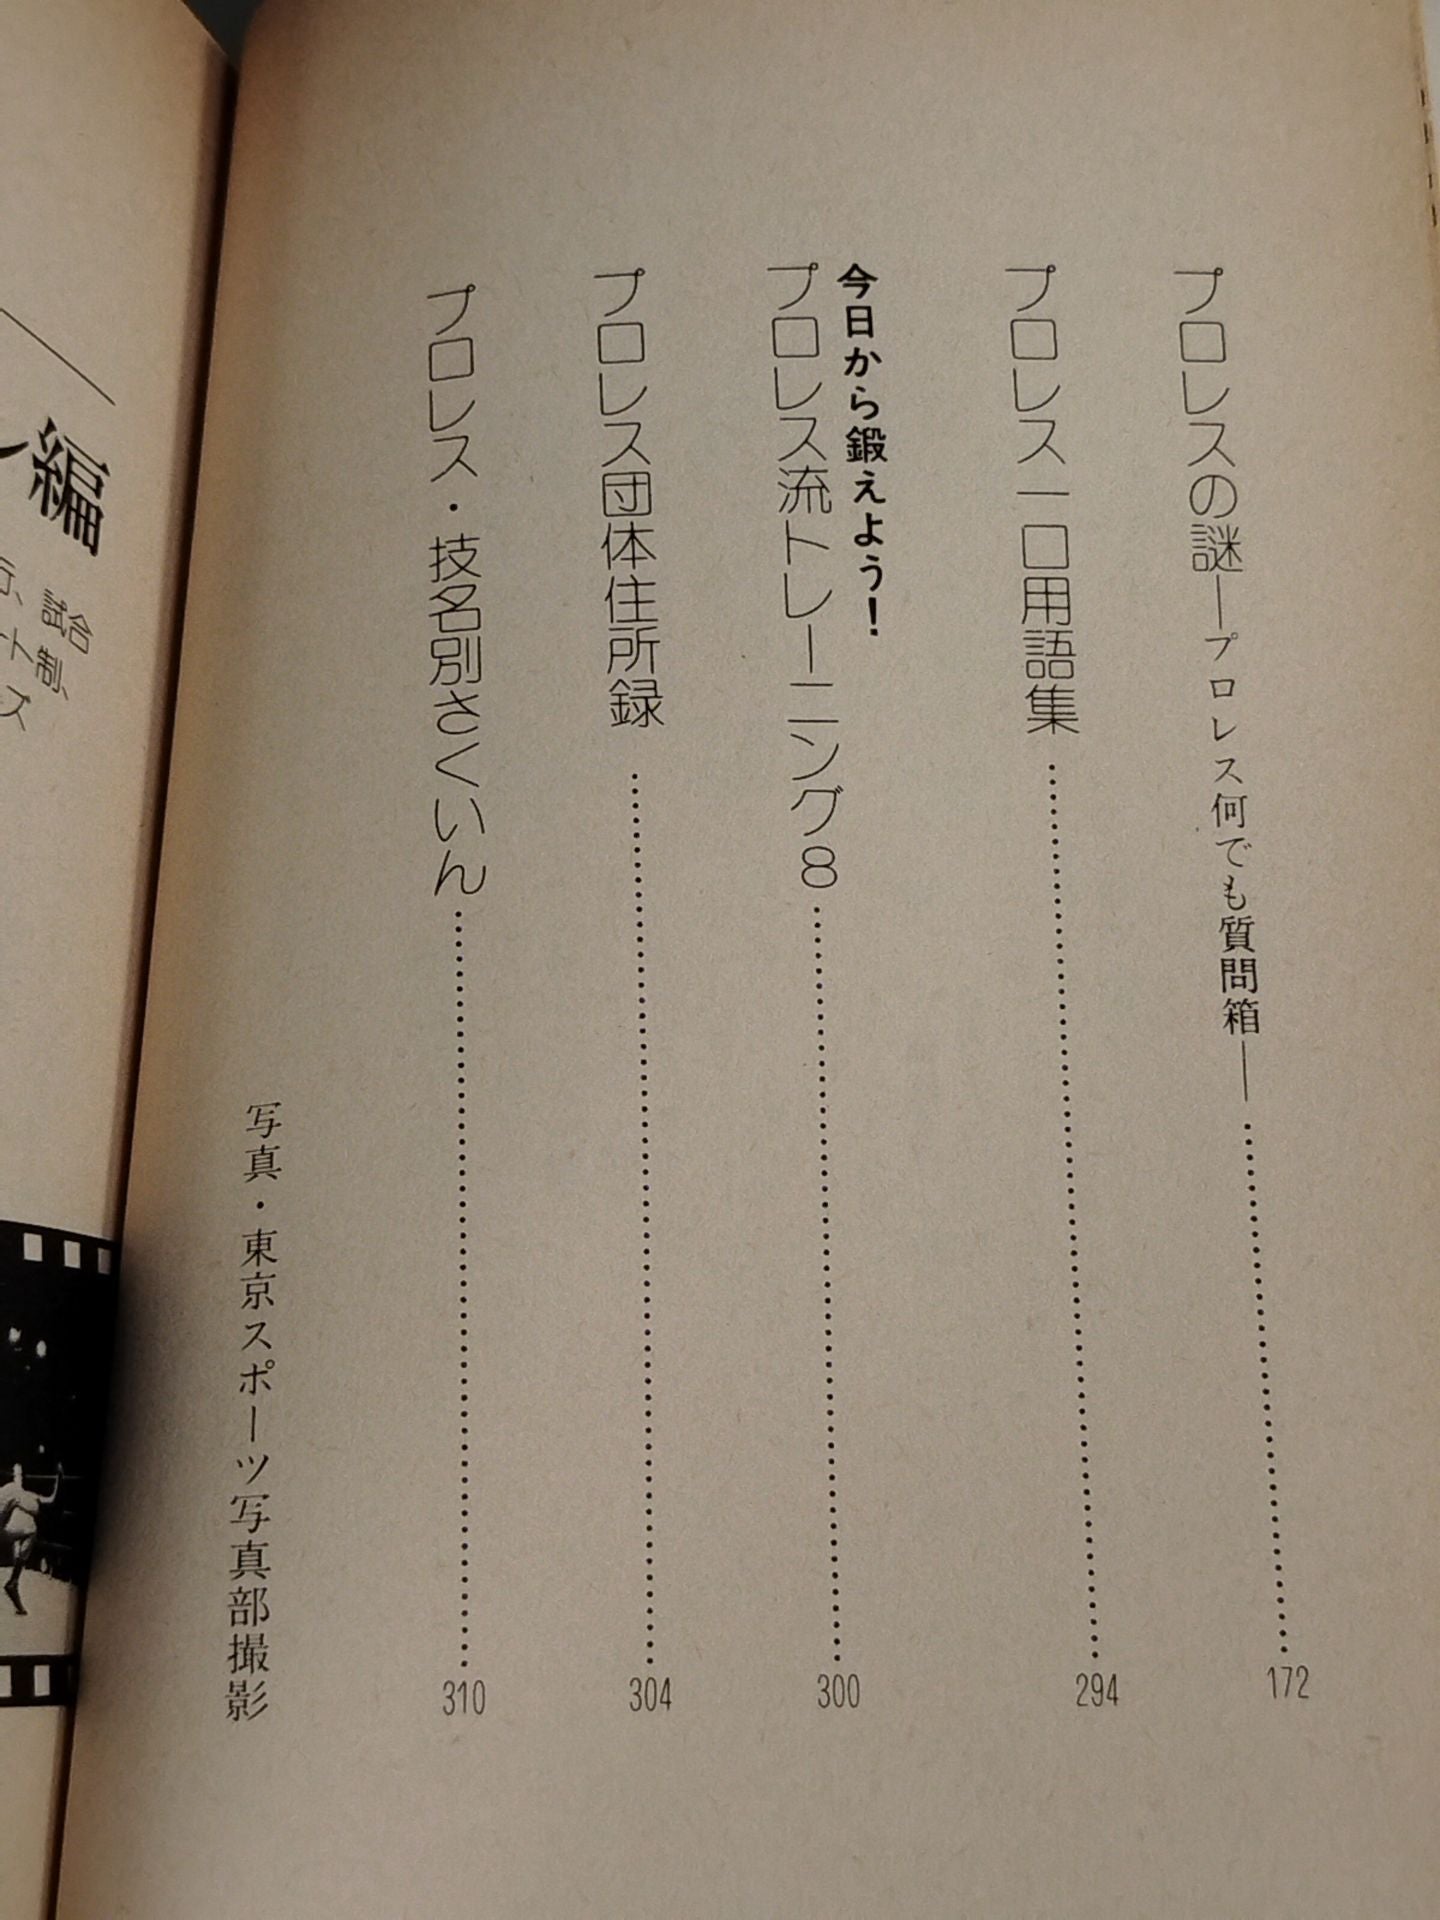 プロレスの謎―プロレス何でも質問箱―……172
プロレス一口用語集……294
今日から鍛えよう！
プロレス流トレーニング8……300
プロレス団体住所録……304
プロレス・技名別さくいん……310
写真・東京スポーツ写真部撮影
編
試合
制、
ズ